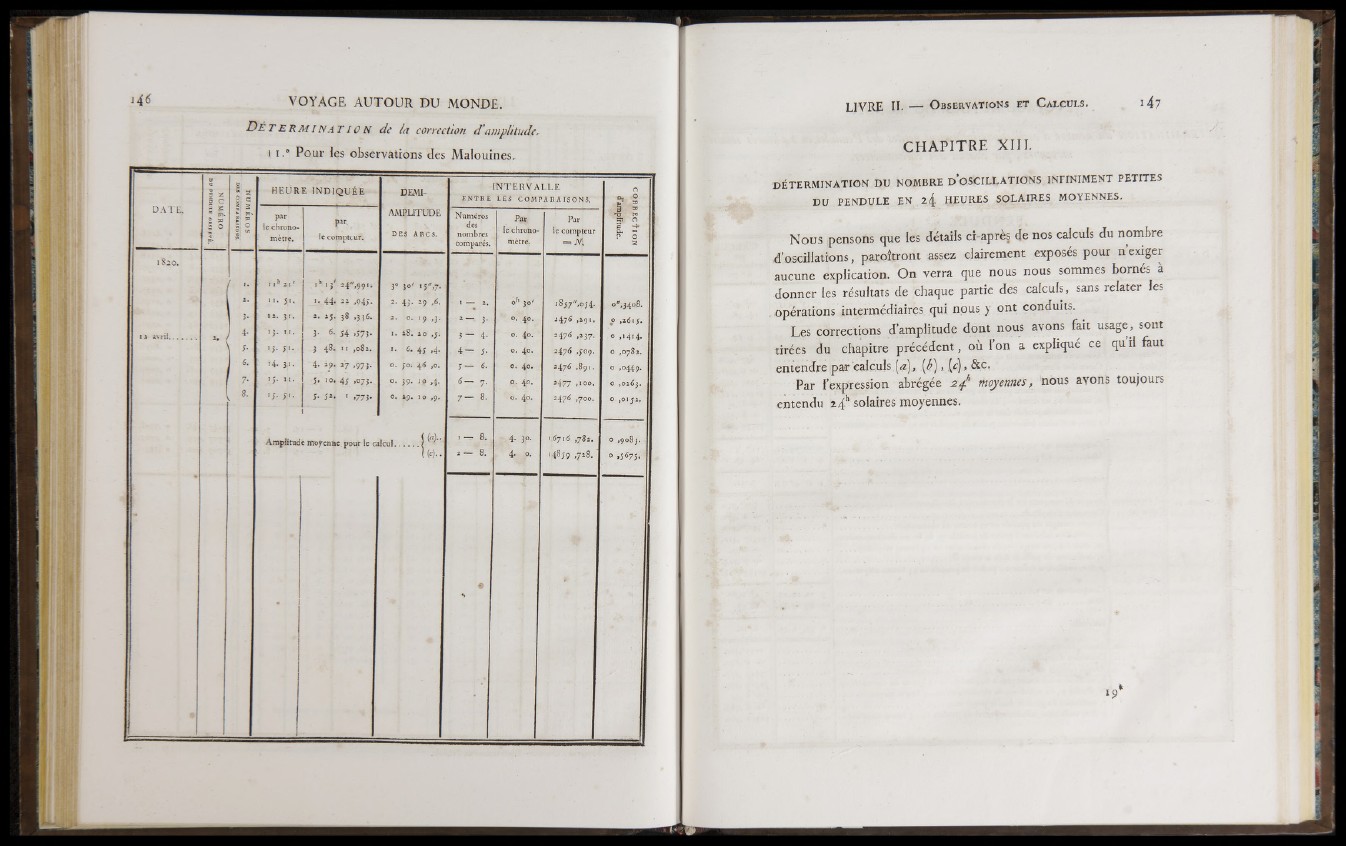 146 VOYAGE AUTOUR DU MONDE.
DÉTERMINATION de la correction d'amplitude.
11.° Pour les observations des Malouines.
DATE.
NUMÉRO DU PENDULE OBSERVÉ.
NUMÉROS DES COMPARAISONS.
HEURE INDIQUÉE
par le chronomètre.
par le compteur.
DEMI-AMPLITUDE DES ARCS.
INTERVALLE ENTRE LES COMPARAISONS.
Numéros des nombres comparés.
Par le chronomètre.
Par le compteur = N.
CORRECTION d'amplitude.
1820.
12 avril...... 2.
1. 11h 21' 1h 13' 24",991. 3° 30' 15",7.
2. 11. 51. 1. 44. 22 ,045. 2. 43. 29 ,6. 1 — 2. 0h 30' 1857",054. 0",3408.
3. 12. 31. 2. 25. 38 ,336. 2. 0. 19 ,3. 2 — 3. 0. 40. 2476 ,291. 0 ,2615.
4. 13. 11. 3. 6. 54 ,573. 1. 28. 20 ,5. 3 — 4. 0. 40. 2476 ,237. 0 ,1414.
5. 13. 51. 3 48. 11 ,082. 1. 6. 45 ,4. 4 — 5. 0. 40. 2476 ,509. 0 ,0782.
6. 14. 31. 4. 29. 27 ,973. 0. 50. 46 ,0. 5 — 6. 0. 40. 2476 ,891. 0 ,0449.
7. 15. 11. 5. 10. 45 ,073. 0. 39. 19 ,4. 6 — 7. 0. 40. 2477 ,100. 0 ,0263.
8. 15. 51. 5. 52. 1 ,773. 0. 29. 10 ,9. 7 — 8. 0. 40. 2476 ,700. 0 ,0152.
Amplitude moyenne pour le calcul...... (a).. 1 — 8. 4. 30. 16716 ,782. 0 ,9083.
(c).. 2 — 8. 4. 0. 14859 ,728. 0 ,5675.
LIVRE II. — OBSERVATIONS ET CALCULS. 147
CHAPITRE XIII.
DÉTERMINATION DU NOMBRE D'OSCILLATIONS INFINIMENT PETITES
DU PENDULE EN 24 HEURES SOLAIRES MOYENNES.
Nous pensons que les détails ci-après de nos calculs du nombre
d'oscillations, paroîtront assez clairement exposés pour n'exiger
aucune explication. On verra que nous nous sommes bornés à
donner les résultats de chaque partie des calculs, sans relater les
opérations intermédiaires qui nous y ont conduits.
Les corrections d'amplitude dont nous avons fait usage, sont
tirées du chapitre précédent, où l'on a expliqué ce qu'il faut
entendre par calculs (a), (b), (c), &c.
Par l'expression abrégée 24h moyennes, nous avons toujours
entendu 24h solaires moyennes.
19*